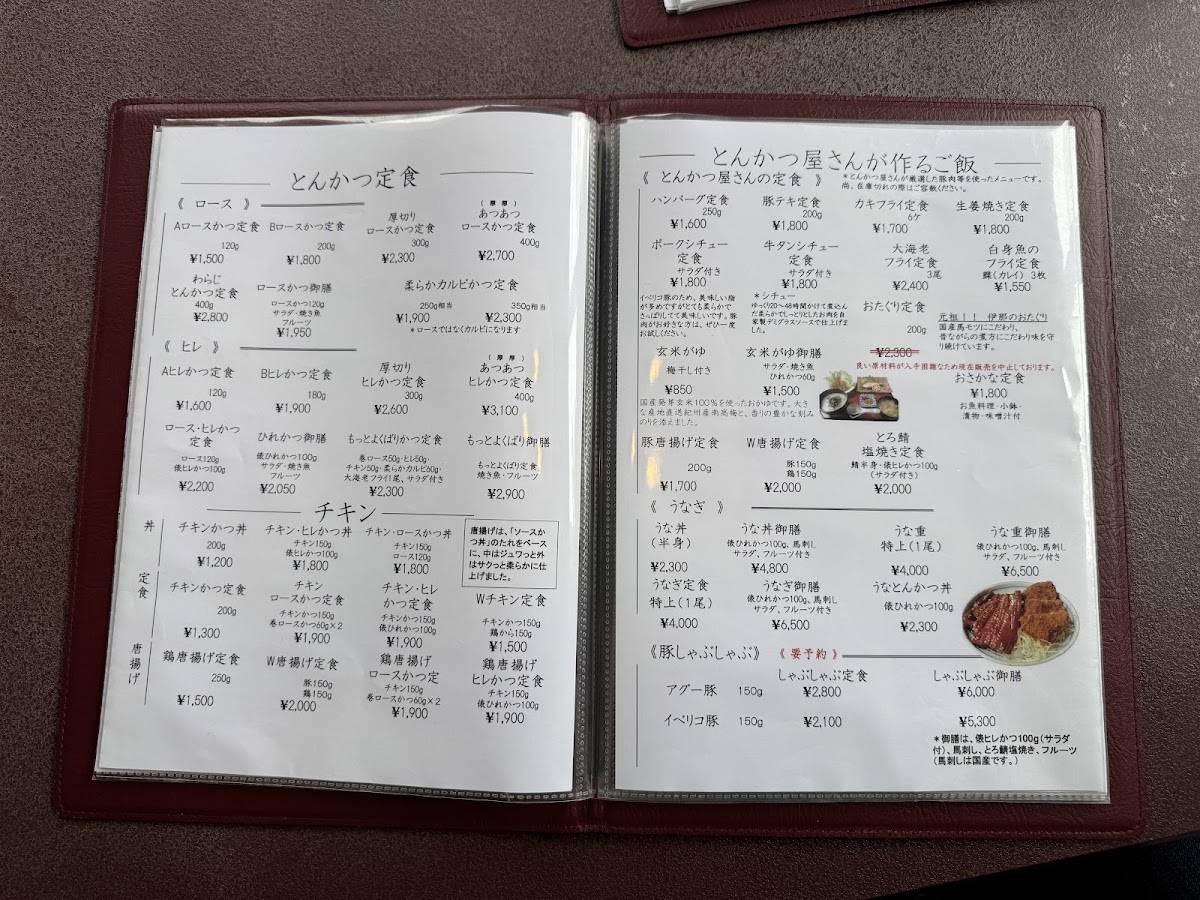 とんかつ定食
《 ロース 》
Aロースかつ定食
120g
¥1,500
Bロースかつ定食
200g
¥1,800
厚切り
ロースかつ定食
300g
¥2,300
(厚厚)
あつあつ
ロースかつ定食
400g
¥2,700
わらじ
とんかつ定食
400g
¥2,800
ロースかつ御膳
ロースかつ120g
サラダ・焼き魚
フルーツ
¥1,950
柔らかカルビかつ定食
250g相当
¥1,900
350g相当
¥2,300
*ロースではなくカルビになります
《 ヒレ 》
Aヒレかつ定食
120g
¥1,600
Bヒレかつ定食
180g
¥1,900
厚切り
ヒレかつ定食
300g
¥2,600
(厚厚)
あつあつ
ヒレかつ定食
400g
¥3,100
ロース・ヒレかつ
定食
ロース120g
俵ヒレかつ100g
¥2,200
ひれかつ御膳
俵ひれかつ100g
サラダ・焼き魚
フルーツ
¥2,050
もっとよくばりかつ定食
巻ロース50g・ヒレ50g・
チキン50g・柔らかカルビ60g・
大海老フライ1尾、サラダ付き
¥2,300
もっとよくばり御膳
もっとよくばり定食
焼き魚・フルーツ
¥2,900
チキン
丼
チキンかつ丼
200g
¥1,200
チキン・ヒレかつ丼
チキン150g
俵ヒレかつ100g
¥1,800
チキン・ロースかつ丼
チキン150g
ロース120g
¥1,800
唐揚げは、「ソースか
つ丼」のたれをベース
に、中はジュワっと外
はサクっと柔らかに仕
上げました。
定食
チキンかつ定食
200g
¥1,300
チキン
ロースかつ定食
チキンかつ150g
巻ロースかつ60g×2
¥1,900
チキン・ヒレ
かつ定食
チキンかつ150g
俵ひれかつ100g
¥1,900
Wチキン定食
チキンかつ150g
鶏から150g
¥1,500
唐揚げ
鶏唐揚げ定食
250g
¥1,500
W唐揚げ定食
豚150g
鶏150g
¥2,000
鶏唐揚げ
ロースかつ定
チキン150g
巻ロースかつ60g×2
¥1,900
鶏唐揚げ
ヒレかつ定食
チキン150g
俵ひれかつ100g
¥1,900
とんかつ屋さんが作るご飯
《 とんかつ屋さんの定食 》
*とんかつ屋さんが厳選した豚肉等を使ったメニューです。
尚、在庫切れの際はご容赦ください。
ハンバーグ定食
250g
¥1,600
豚テキ定食
200g
¥1,800
カキフライ定食
6ケ
¥1,700
生姜焼き定食
200g
¥1,800
ポークシチュー
定食
サラダ付き
¥1,800
牛タンシチュー
定食
サラダ付き
¥1,800
大海老
フライ定食
3尾
¥2,400
白身魚の
フライ定食
鰈(カレイ) 3枚
¥1,550
イベリコ豚のため、美味しい脂
が多めですがとても柔らかで
さっぱりしてて美味しいです。豚
肉がお好きな方は、ぜひ一度
お試しください。
*シチュー
ゆっくり20~48時間かけて煮込ん
だ柔らかでしっとりとしたお肉を自
家製デミグラスソースで仕上げま
した。
おたぐり定食
200g
¥2,300
元祖!! 伊那のおたぐり
国産馬モツにこだわり、
昔ながらの煮方にこだわり味を守
り続けています。
良い原材料が入手困難なため現在販売を中止しております。
玄米がゆ
梅干し付き
¥850
玄米がゆ御膳
サラダ・焼き魚
ひれかつ60g
¥1,500
国産発芽玄米100%を使ったおかゆです。大き
な産地直送紀州産南高梅と、香りの豊かな刻み
のりを添えました。
おさかな定食
¥1,800
お魚料理・小鉢・
漬物・味噌汁付
豚唐揚げ定食
200g
¥1,700
W唐揚げ定食
豚150g
鶏150g
¥2,000
とろ鯖
塩焼き定食
鯖半身・俵ヒレかつ100g
(サラダ付き)
¥2,000
《 うなぎ 》
うな丼
(半身)
¥2,300
うな丼御膳
俵ひれかつ100g、馬刺し
サラダ、フルーツ付き
¥4,800
うな重
特上(1尾)
¥4,000
うな重御膳
俵ひれかつ100g、馬刺し
サラダ、フルーツ付き
¥6,500
うなぎ定食
特上(1尾)
¥4,000
うなぎ御膳
俵ひれかつ100g、馬刺し
サラダ、フルーツ付き
¥6,500
うなとんかつ丼
俵ひれかつ100g
¥2,300
《豚しゃぶしゃぶ》《 要予約 》
しゃぶしゃぶ定食
しゃぶしゃぶ御膳
アグー豚 150g ¥2,800 ¥6,000
イベリコ豚 150g ¥2,100 ¥5,300
*御膳は、俵ヒレかつ100g(サラダ
付)、馬刺し、とろ鯖塩焼き、フルーツ
(馬刺しは国産です。)